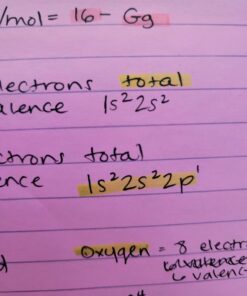 /mol = 16 - Gg
lectrons total
alence 1s² 2s²
ctrons total
ence 1s² 2s² 2p¹
Oxygen = 8 electr
6 valenc